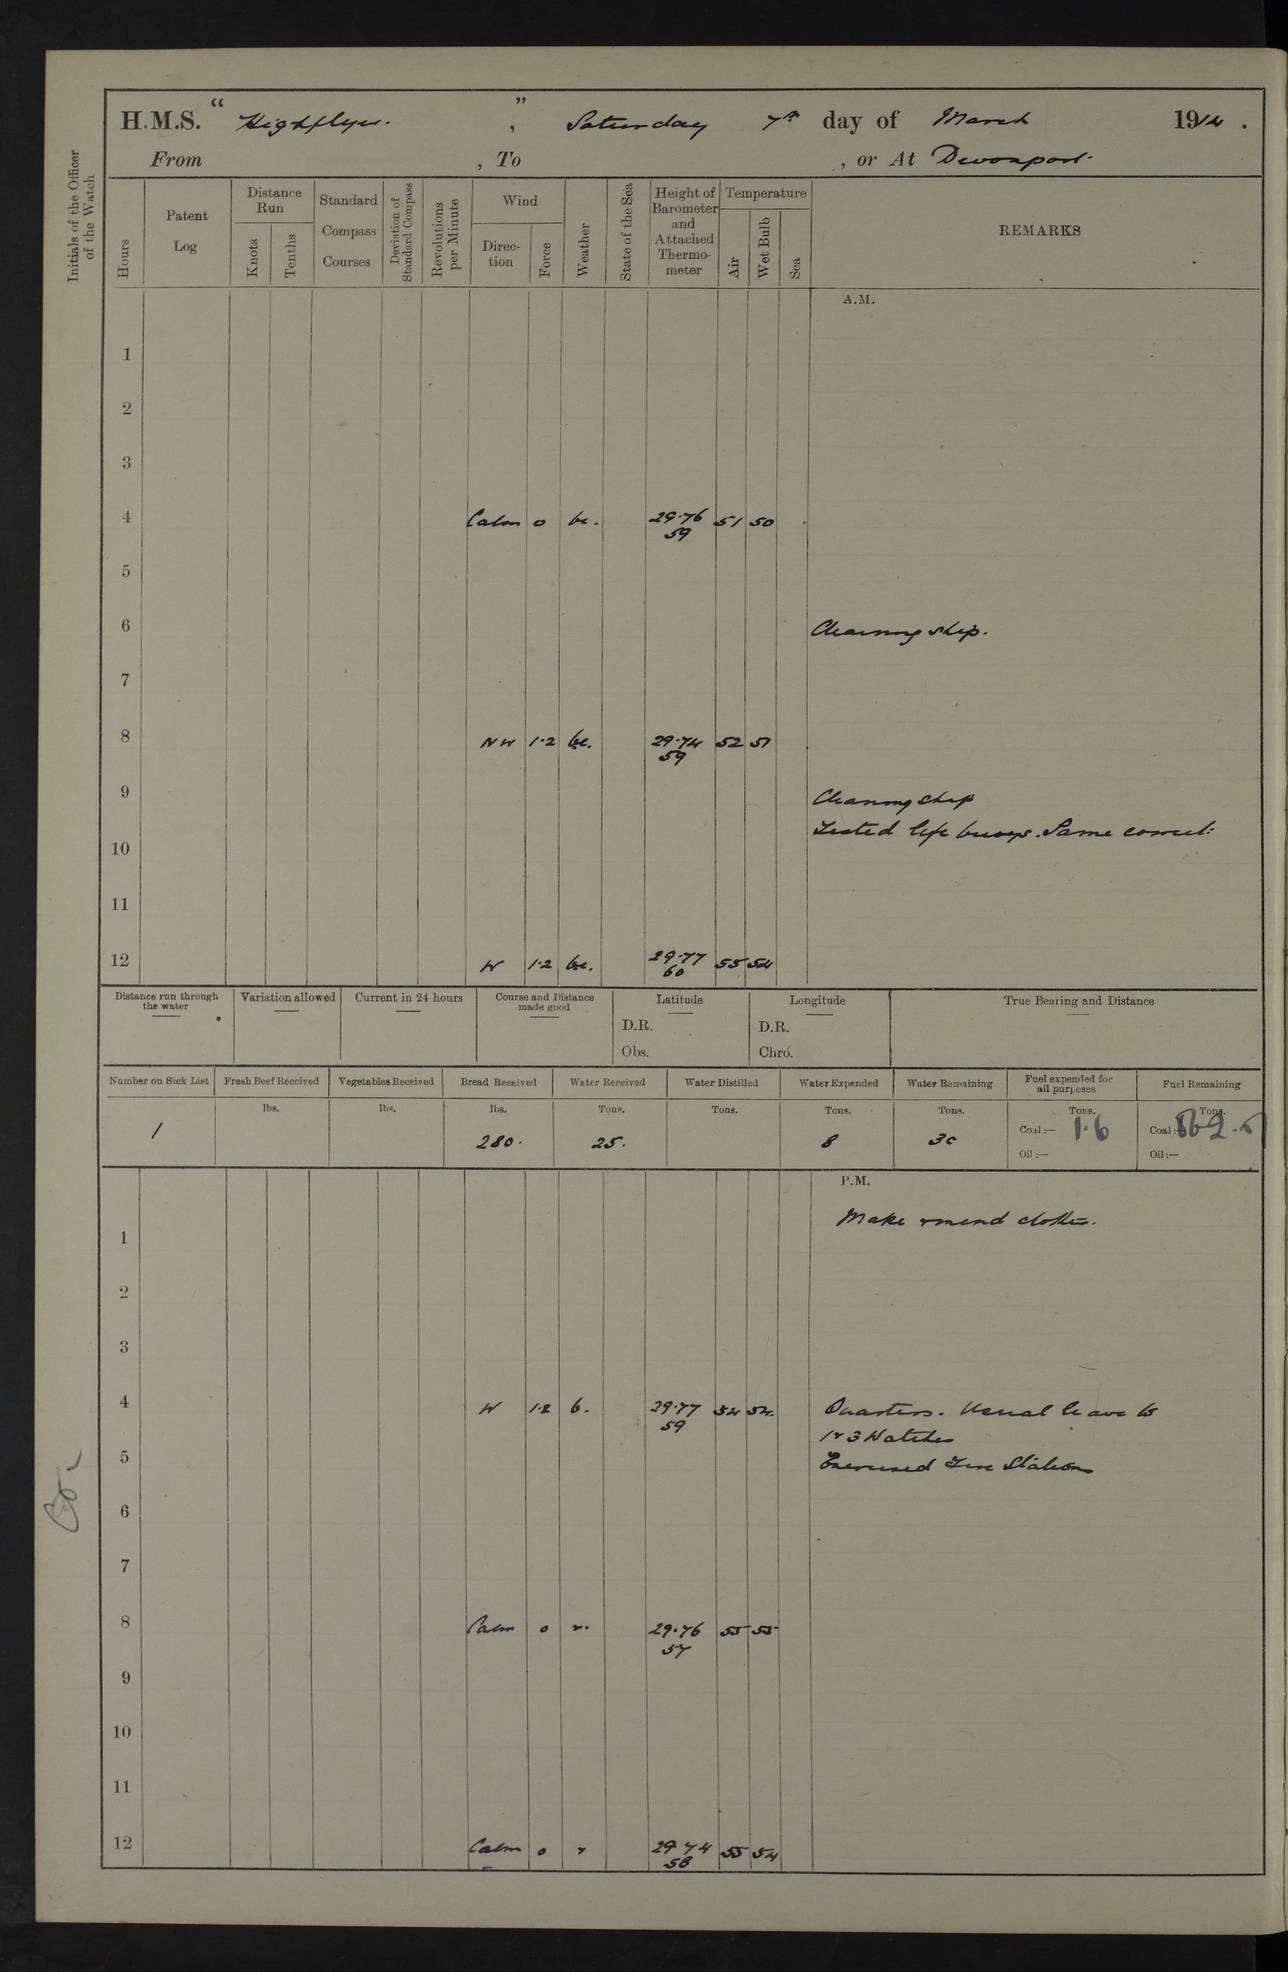 H.M.S. “ Highflyer. ” , Saturday 7th day of March 1914 .
From , To , or At Devonport.
Initials of the Officer of the Watch
Hours
Patent Log
Distance Run
Knots
Tenths
Standard Compass Courses
Deviation of Standard Compass
Revolutions per Minute
Wind
Direc-tion
Force
Weather
State of the Sea
Height of Barometer and Attached Thermo-meter
Temperature
Air
Wet Bulb
Sea
REMARKS
A.M.
1
2
3
4 Calm 0 bc. 29.76 51 50
59
5
6 Cleaning ship.
7
8 NW 1.2 bc. 29.74 52 51
59
9 Cleaning ship
Tested life buoys. Same correct.
10
11
12 W 1.2 bc. 29.77 55 54
60
Distance run through the water
Variation allowed
Current in 24 hours
Course and Distance made good
Latitude
D.R.
Obs.
Longitude
D.R.
Chro.
True Bearing and Distance
Number on Sick List Fresh Beef Received Vegetables Received Bread Received Water Received Water Distilled Water Expended Water Remaining Fuel expended for all purposes Fuel Remaining
lbs. lbs. lbs. Tons. Tons. Tons. Tons. Tons. Tons.
1 280. 25. 8 30 Coal:— 1.6 Coal:—
Oil:— Oil:—
P.M.
Make & mend clothes.
1
2
3
4 W 1.2 b. 29.77 54 54. Quarters. Usual leave to
59 1 & 3 Watches
5 Exercised Fire Stations
6
7
8 Calm 0 r. 29.76 55 55
57
9
10
11
12 Calm 0 r 29 74 55 54
58